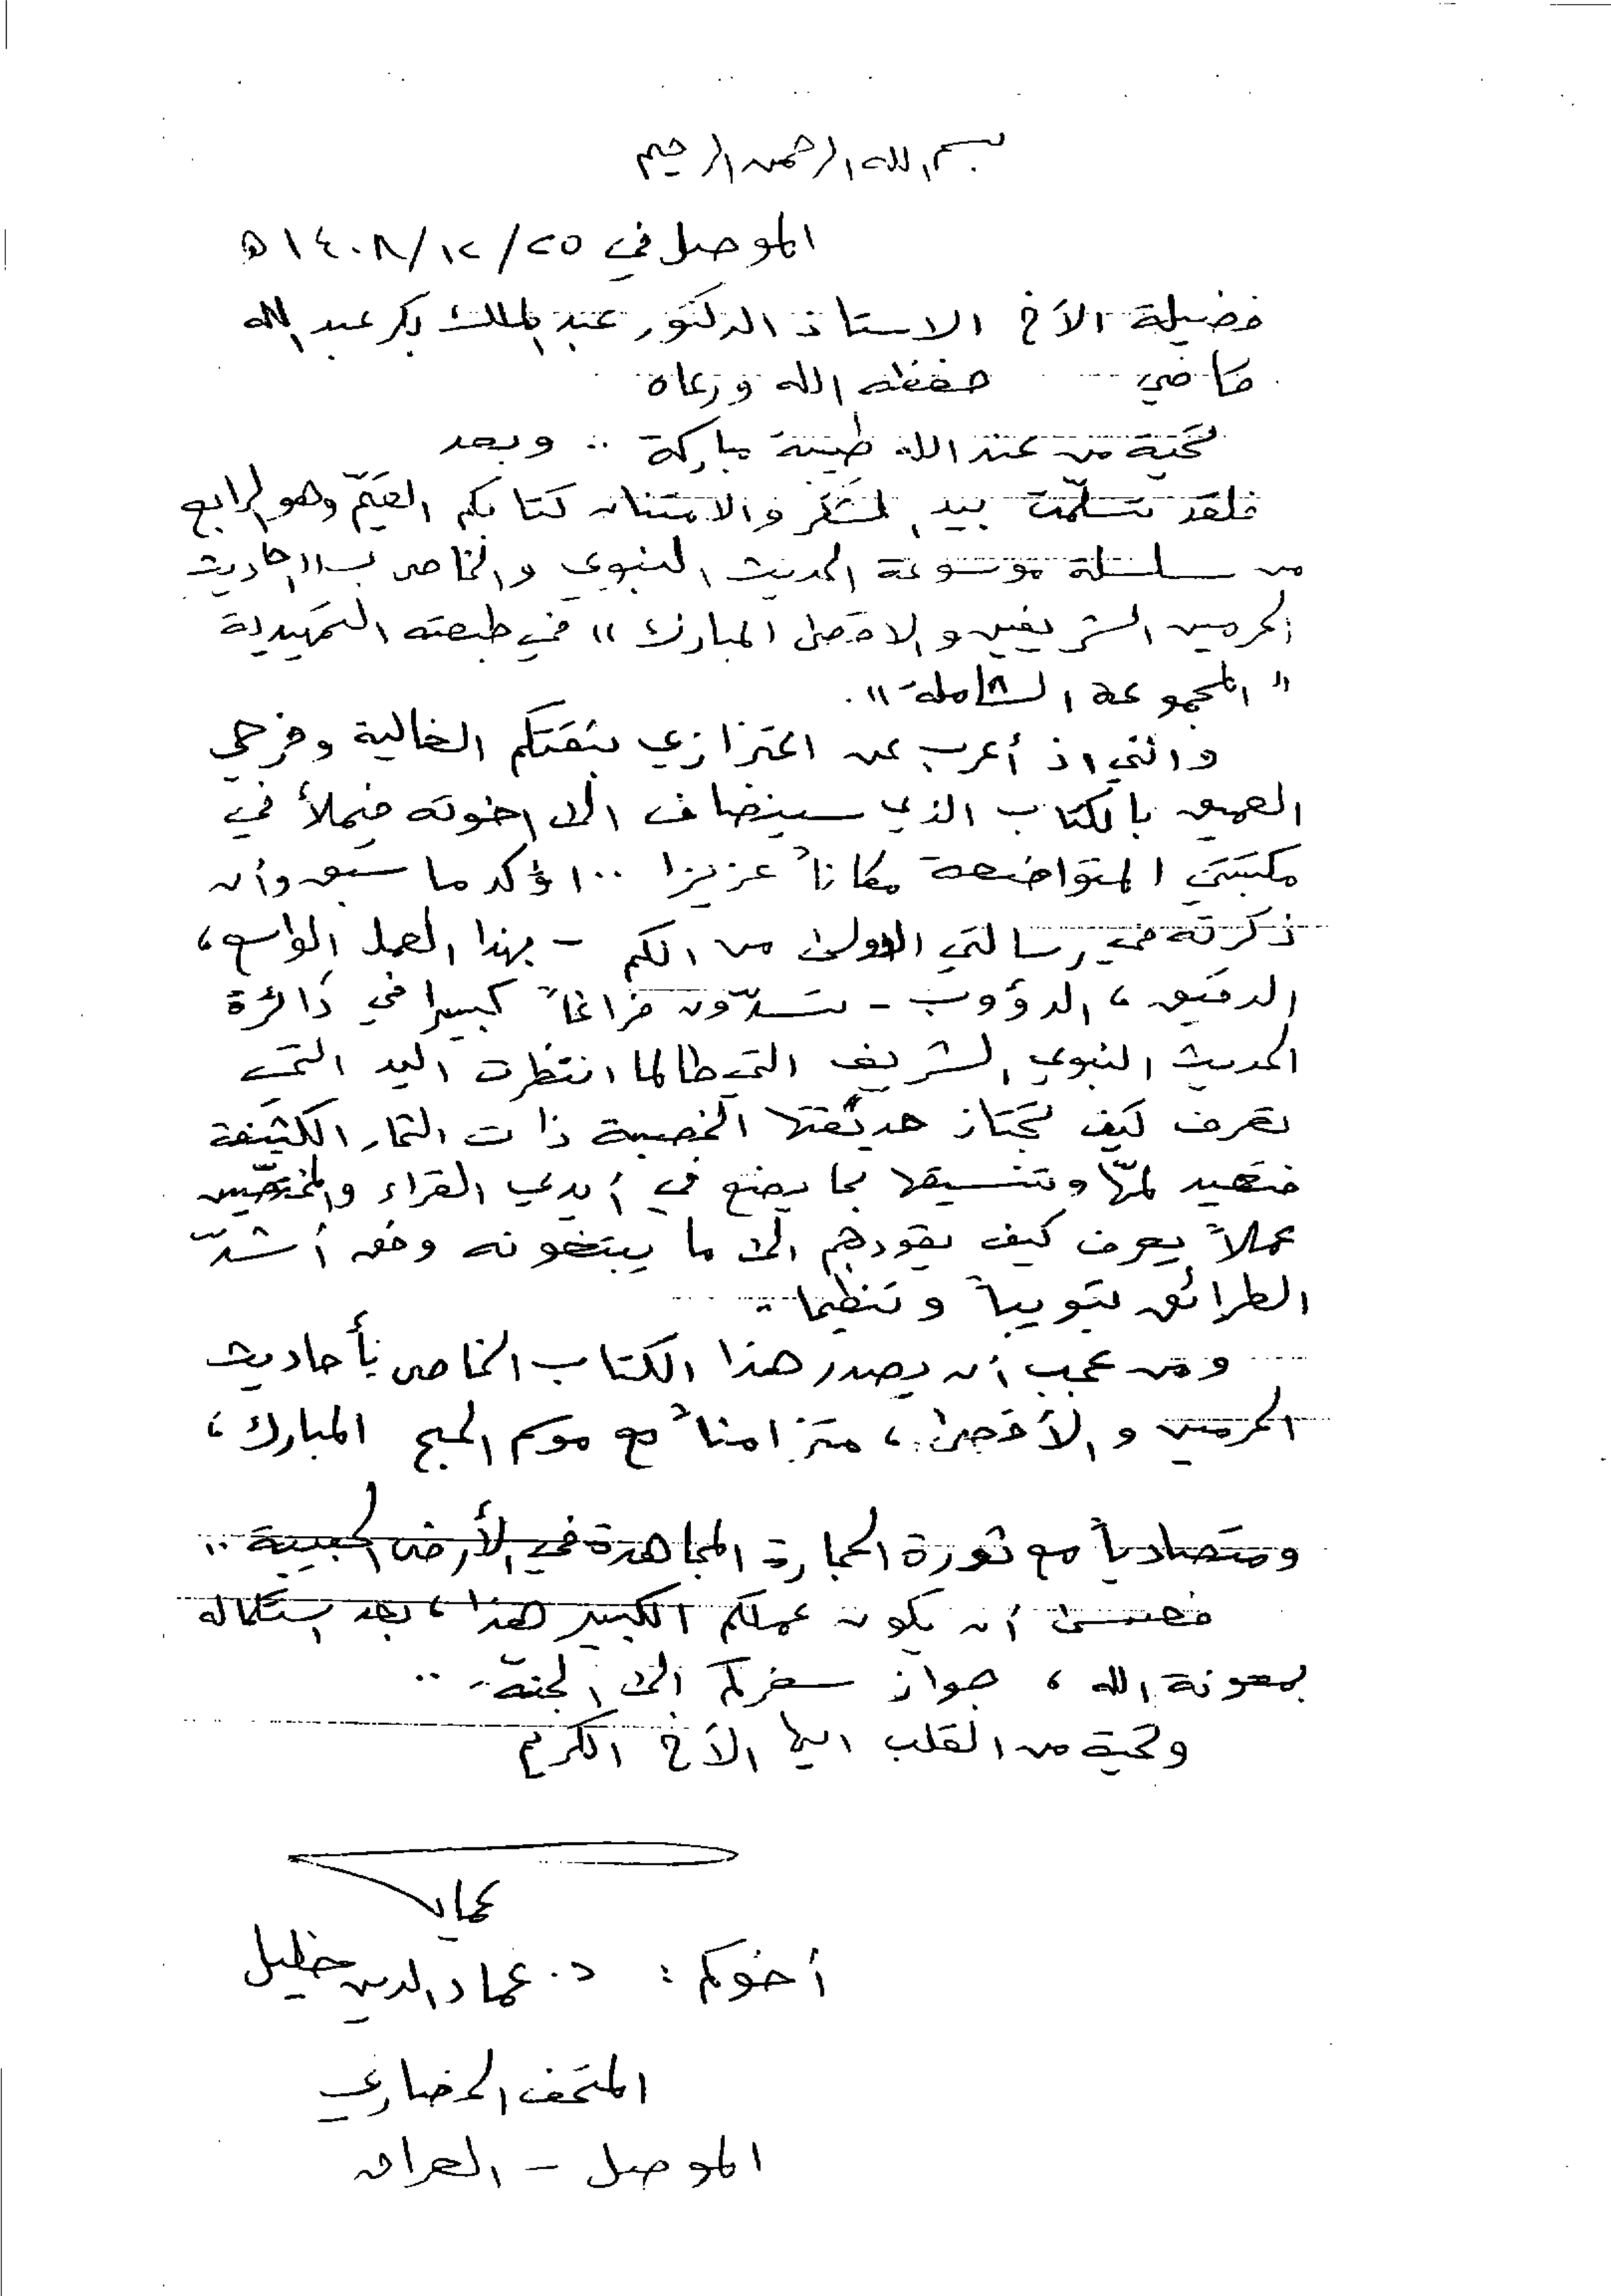 بسم الله الرحمن الرحيم
الموصل في ٢٥/١٢/١٤٠٨ ه
فضيلة الأخ الاستاذ الدكتور عبد الملك بكر عبد الله
قاضي حفظه الله ورعاه
تحية من عند الله طيبة مباركة .. وبعد
فلقد تسلّمت بيد الشكر والامتنان كتابكم القيّم وهو الرابع
من سلسلة موسوعة الحديث النبوي والخاص بـ "احاديث
الحرمين الشريفين والاقصى المبارك" في طبعته التمهيدية
"المجموعة الشاملة".
وانني اذ أعرب عن اعتزازي بثقتكم الغالية وفرحي
العميق بالكتاب الذي سينضاف الى اخوته فيملأ في
مكتبتي المتواضعة مكاناً عزيزا .. اؤكد ما سبق وأن
ذكرته في رسالتي الاولى من انكم - بهذا العمل الواسع،
الدقيق، الدؤوب - تسدّون فراغاً كبيرا في دائرة
الحديث النبوي الشريف التي طالما انتظرت اليد التي
تعرف كيف تجتاز حديقتها الخصبة ذات الثمار الكثيفة
فتعيد لمّها وتنسيقها بما يضع في أيدي القراء والمختصّين
عملاً يعرف كيف يقودهم الى ما يبتغونه وفق أشدّ
الطرائق تبويباً وتنظيما..
ومن عجب أن يصدر هذا الكتاب الخاص بأحاديث
الحرمين والأقصى، متزامناً مع موسم الحج المبارك،
ومتصادياً مع ثورة الحجارة المجاهدة في الأرض الحبيبة ..
فعسى أن يكون عملكم الكبير هذا، بعد استكماله
بمعونة الله، جواز سفركم الى الجنّة ..
وتحية من القلب ايها الأخ الكريم
عماد
أخوكم : د. عماد الدين خليل
المتحف الحضاري
الموصل - العراق